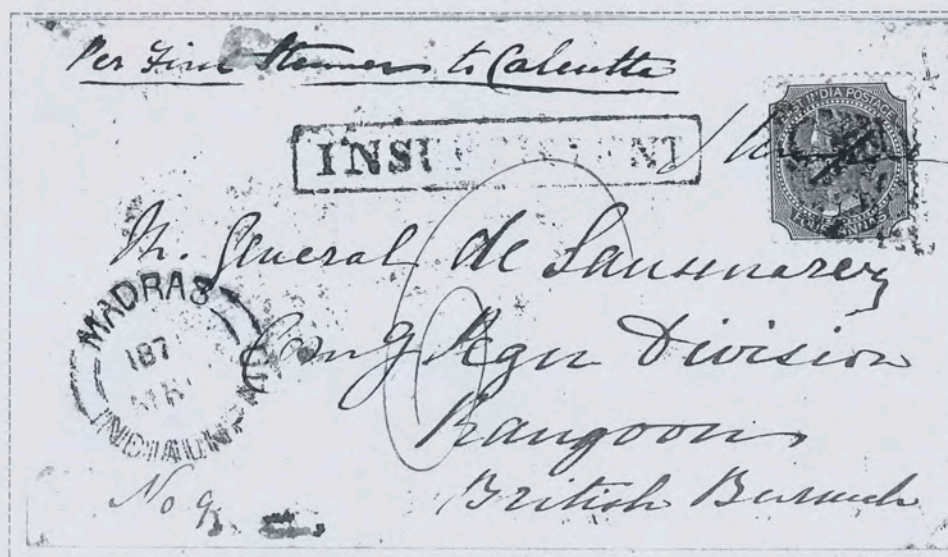 Per First Steamer to Calcutta
EAST INDIA POSTAGE
ANNAS
INSUFFICIENT
M. General de Sausmarez
Comg Rgn Division
Rangoon
British Burmah
MADRAS
187
INDIA UNPAID
No 9